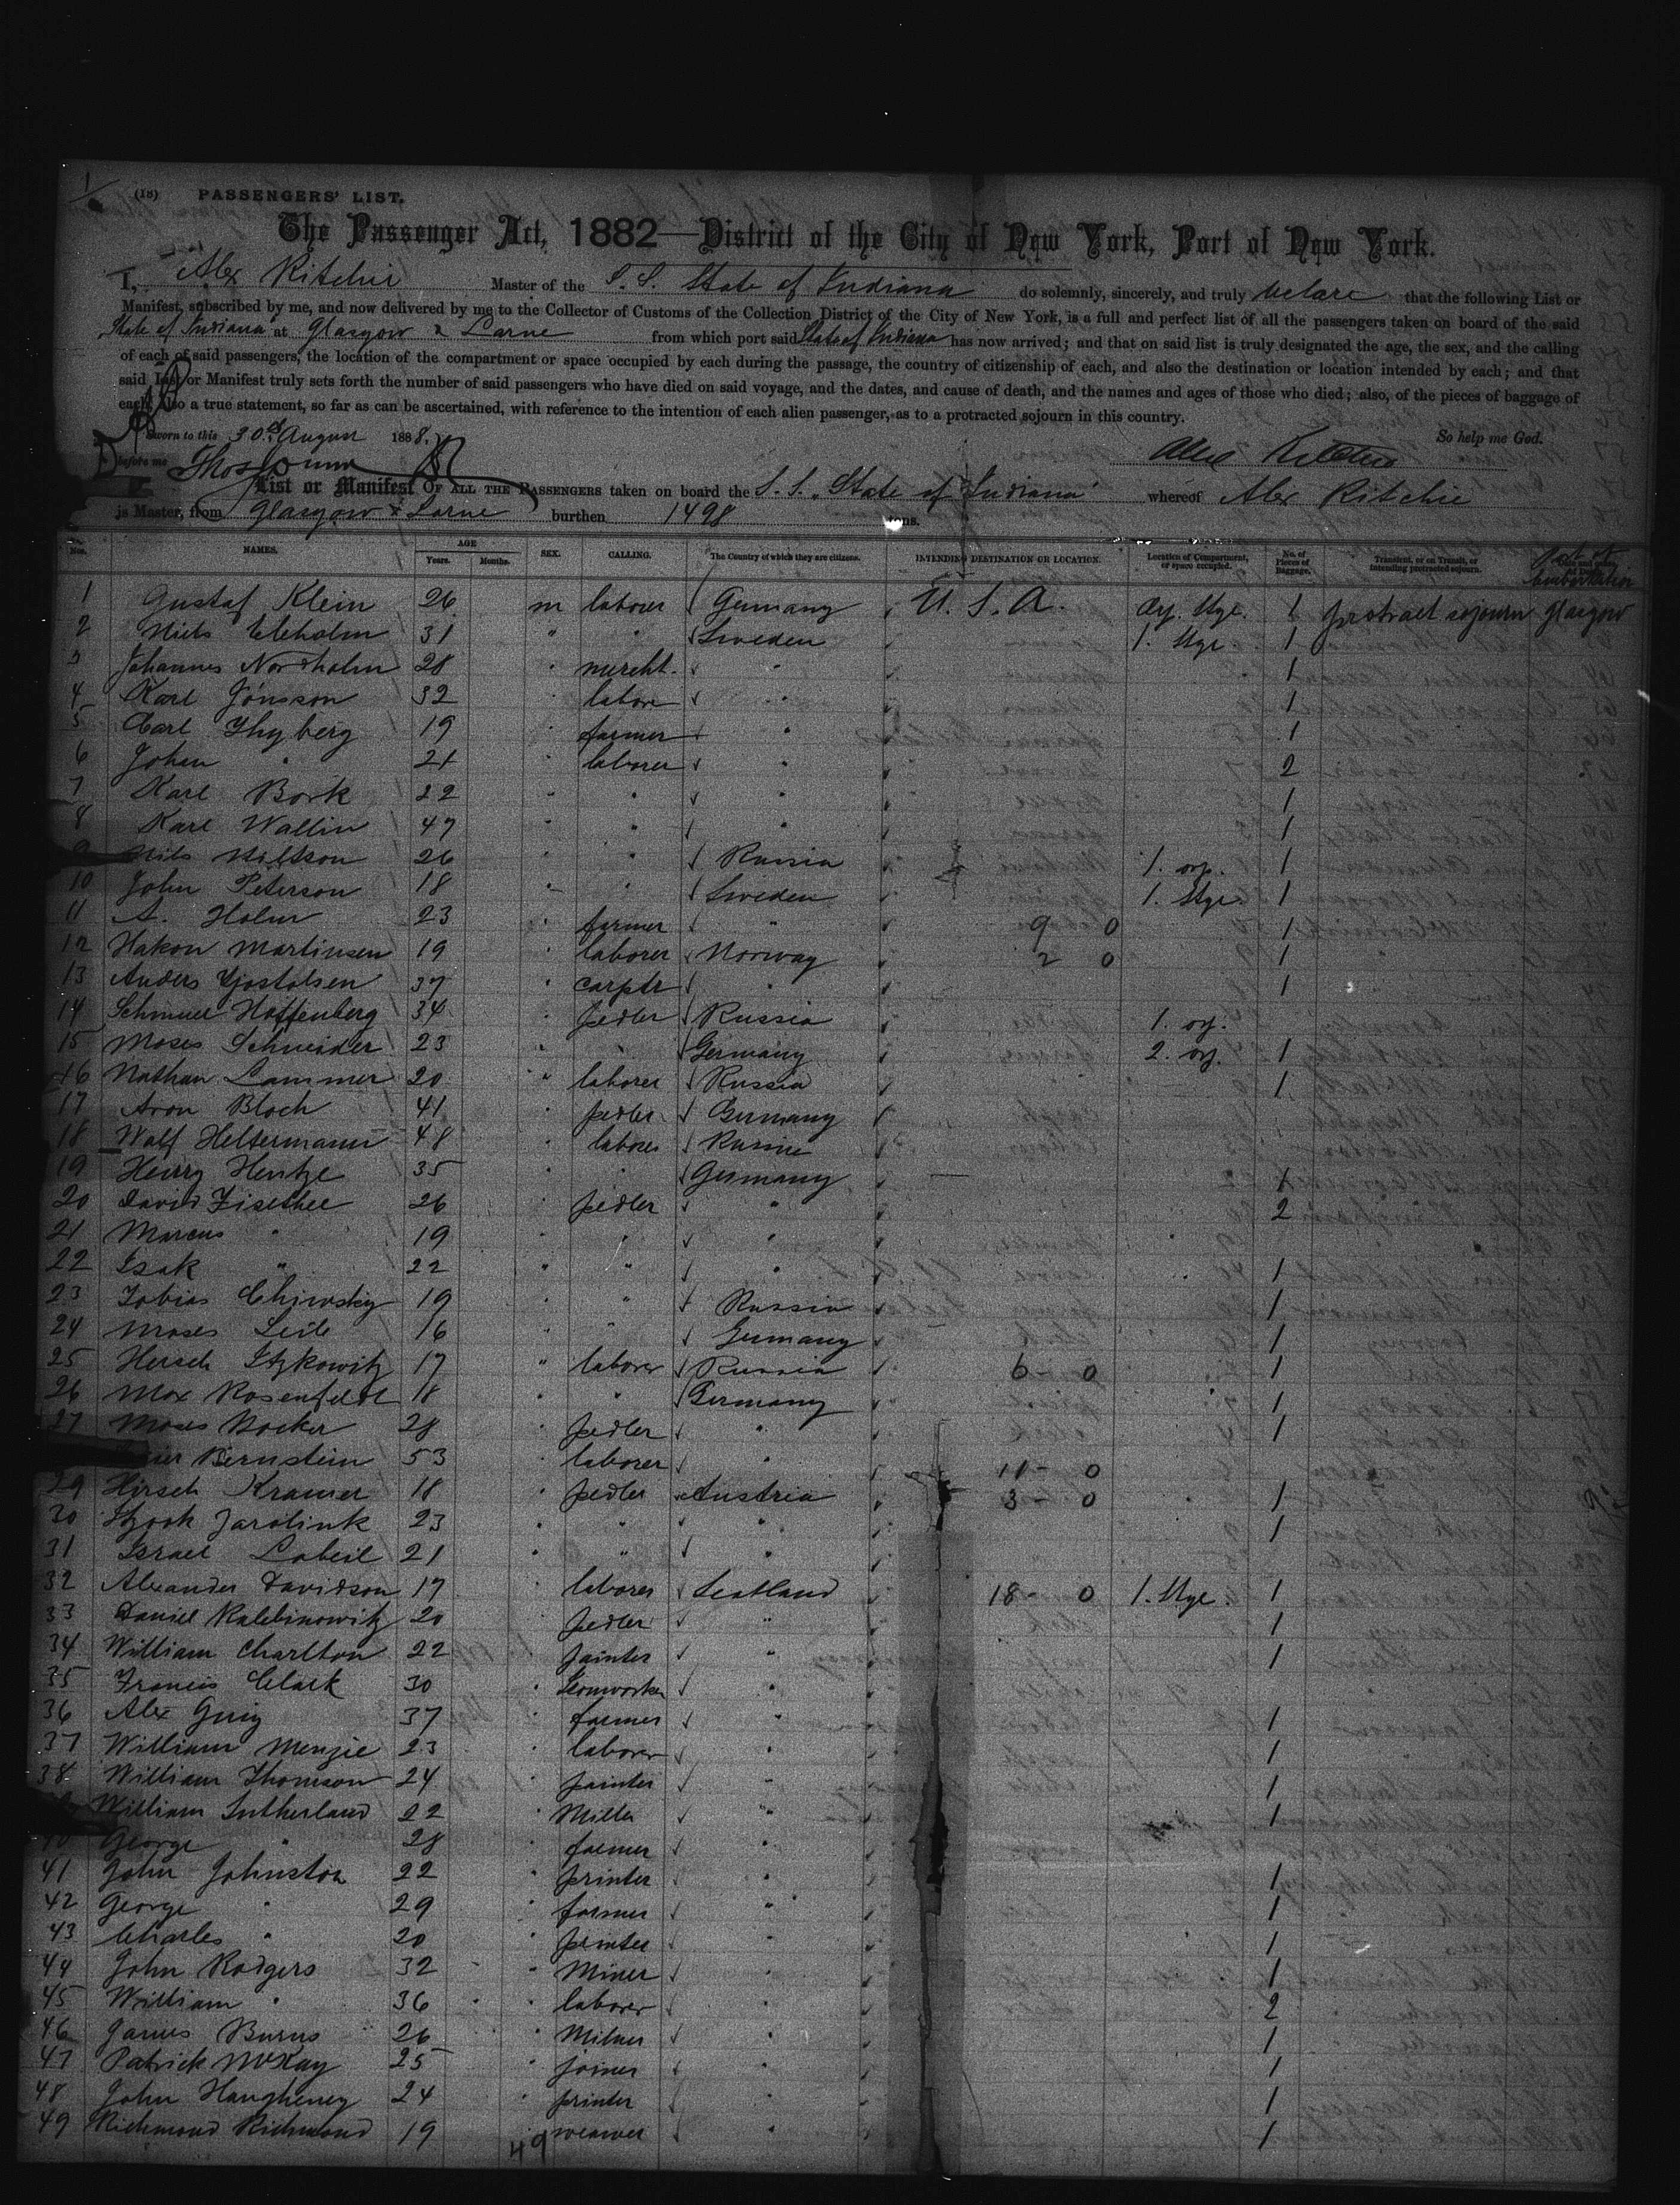 1
(18) PASSENGERS' LIST.
The Passenger Act, 1882—District of the City of New York, Port of New York.
I, Alex Ritchie Master of the S. S. State of Indiana do solemnly, sincerely, and truly declare that the following List or
Manifest, subscribed by me, and now delivered by me to the Collector of Customs of the Collection District of the City of New York, is a full and perfect list of all the passengers taken on board of the said
State of Indiana at Glasgow & Larne from which port said State of Indiana has now arrived; and that on said list is truly designated the age, the sex, and the calling
of each of said passengers, the location of the compartment or space occupied by each during the passage, the country of citizenship of each, and also the destination or location intended by each; and that
said List or Manifest truly sets forth the number of said passengers who have died on said voyage, and the dates, and cause of death, and the names and ages of those who died; also, of the pieces of baggage of
each; also a true statement, so far as can be ascertained, with reference to the intention of each alien passenger, as to a protracted sojourn in this country.
Sworn to this 30th August 1888. So help me God.
before me Thos Alex Ritchie
List or Manifest OF ALL THE PASSENGERS taken on board the S. S. "State of Indiana" whereof Alex Ritchie
is Master, from Glasgow & Larne burthen 1498 tons.
Nos. NAMES. AGE Years. Months. SEX. CALLING. The Country of which they are citizens. INTENDING DESTINATION OR LOCATION. Location of Compartment, or space occupied. No. of Pieces of Baggage. Transient, or on Transit, or intending protracted sojourn. Port of Embarkation
1 Gustaf Klein 26 m laborer Germany U. S. A. Stge. 1 protract sojourn Glasgow
2 Niels Ekholm 31 " " Sweden 1. Stge. 1
3 Johannes Nordholm 28 " mercht. " 1
4 Karl Jönsson 32 " labore " 1
5 Carl Thyberg 19 " farmer " 1
6 Johan " 21 " laborer " 2
7 Karl Bork 22 " " " 1
8 Karl Wallin 47 " " " 1
9 Nils Nillson 26 " " Russia 1. orp. 1
10 John Peterson 18 " " Sweden 1. Stge. 1
11 A. Holm 23 " farmer " 9 0 1
12 Hakon Martinsen 19 " laborer Norway 2 0 1
13 Anders Gjostolsen 37 " carptr " 1
14 Schmuel Hoffenberg 34 " pedler Russia 1. orp.
15 Moses Schneider 23 " " Germany 2. orp. 1
16 Nathan Lammer 20 " laborer Russia 1
17 Aron Bloch 41 " pedler Germany
18 Wolf Heltermann 48 " laborer Russia
19 Henry Hentze 35 " " Germany 1
20 David 26 " pedler " 2
21 Marcus " 19 " " "
22 Isak " 22 " " " 1
23 Tobias 19 " " Russia 1
24 Moses Leib 16 " " Germany 1
25 Hersch Itzkowitz 17 " laborer Russia 6 - 0 1
26 Max Rosenfeldt 18 " " Germany 1
27 Moses Bocker 28 " pedler " 1
Bernstein 53 " laborer " 11 - 0
29 Hirsch Kramer 18 " pedler Austria 3 - 0 1
30 Jarolink 23 " " " 1
31 Israel Labeil 21 " " "
32 Alexander Davidson 17 laborer Scotland 18 - 0 1. Stge. 1
33 Daniel Rabbinowitz 20 pedler " 1
34 William Charlton 22 painter " 1
35 Francis Clark 30 " Ironworker "
36 Alex Greig 37 " farmer " 1
37 William Menzie 23 " laborer " 1
38 William Thomson 24 " painter " 1
William Sutherland 22 " Miller " 1
40 George " 28 " farmer "
41 John Johnston 22 " printer " 1
42 George " 29 " farmer " 1
43 Charles " 20 " printer " 1
44 John Rodgers 32 " Miner " 1
45 William " 36 " laborer " 2
46 James Burns 26 " Milner " 1
47 Patrick McKay 25 " joiner " 1
48 John Haugheney 24 " printer " 1
49 Richmond Richmond 19 " weaver " 1
49